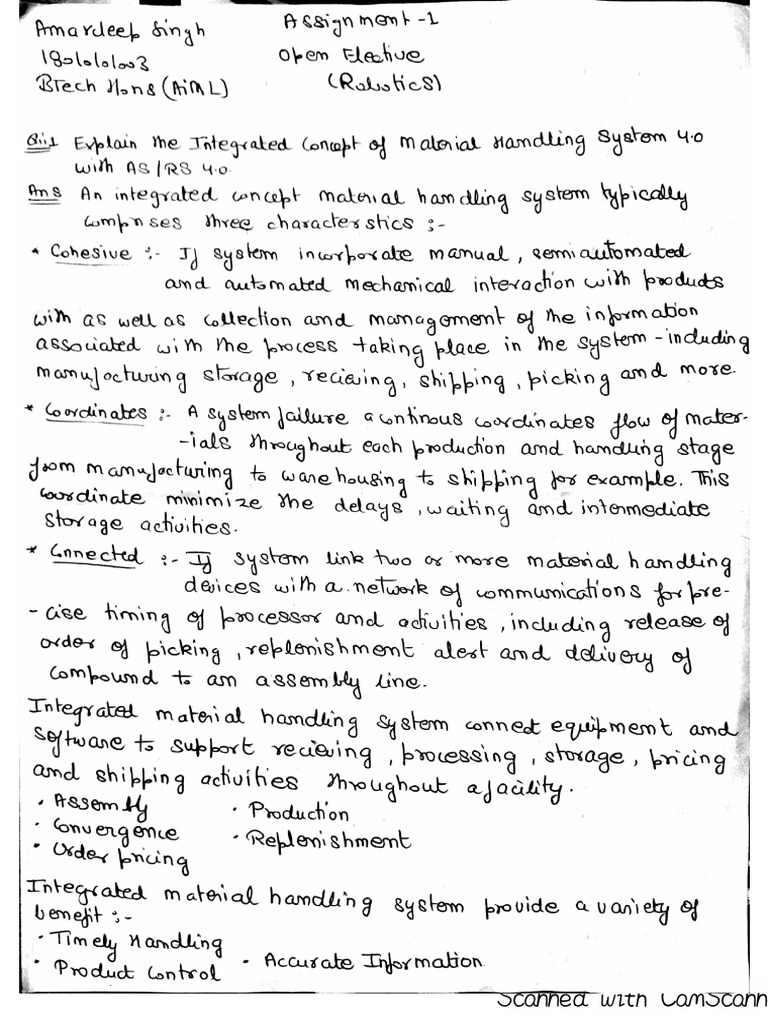 Amardeep Singh
Assignment-1
1801010003
Open Elective
BTech Hons (AiML)
(Robotics)
Q::1 Explain the Integrated Concept of Material Handling System 4.0
with AS/RS 4.0.
Ans An integrated concept material handling system typically
comprises three characterstics :-
* Cohesive :- If system incorporate manual, semiautomated
and automated mechanical interaction with products
with as well as collection and management of the information
associated with the process taking place in the system - including
manufacturing storage, recieving, shipping, picking and more.
* Coordinates :- A system failure a continous coordinates flow of mater-
-ials throughout each production and handling stage
from manufacturing to warehousing to shipping for example. This
coordinate minimize the delays, waiting and intermediate
storage activities.
* Connected :- If system link two or more material handling
devices with a network of communications for pre-
-cise timing of processor and activities, including release of
order of picking, replenishment alert and delivery of
compound to an assembly line.
Integrated material handling system connect equipment and
software to support recieving, processing, storage, pricing
and shipping activities throughout a facility.
• Assembly • Production
• Convergence • Replenishment
• Order pricing
Integrated material handling system provide a variety of
benefit :-
• Timely Handling
• Product Control • Accurate Information
Scanned with CamScann